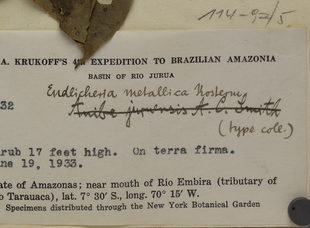 114-97/5
A. KRUKOFF'S 4TH EXPEDITION TO BRAZILIAN AMAZONIA
BASIN OF RIO JURUA
Endlicheria metallica Kosterm.
32
Aniba juruensis A. C. Smith
(type coll.)
rub 17 feet high. On terra firma.
ne 19, 1933.
ate of Amazonas; near mouth of Rio Embira (tributary of
o Tarauaca), lat. 7° 30' S., long. 70° 15' W.
Specimens distributed through the New York Botanical Garden